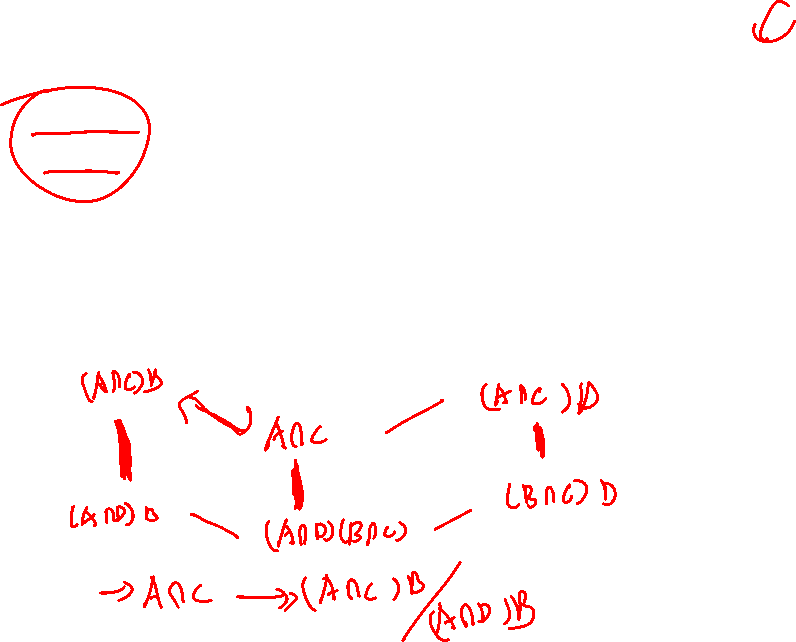 C
(A∩C)B
A∩C
(A∩C)D
(A∩D)B
(A∩D)(B∩C)
(B∩C)D
→ A∩C ↠ (A∩C)B/(A∩D)B